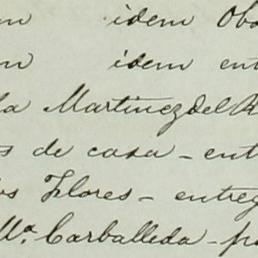 idem Obs
idem ent
Martinez del R
s de casa - ent
os Flores - entreg
Mª. Carballeda - pa